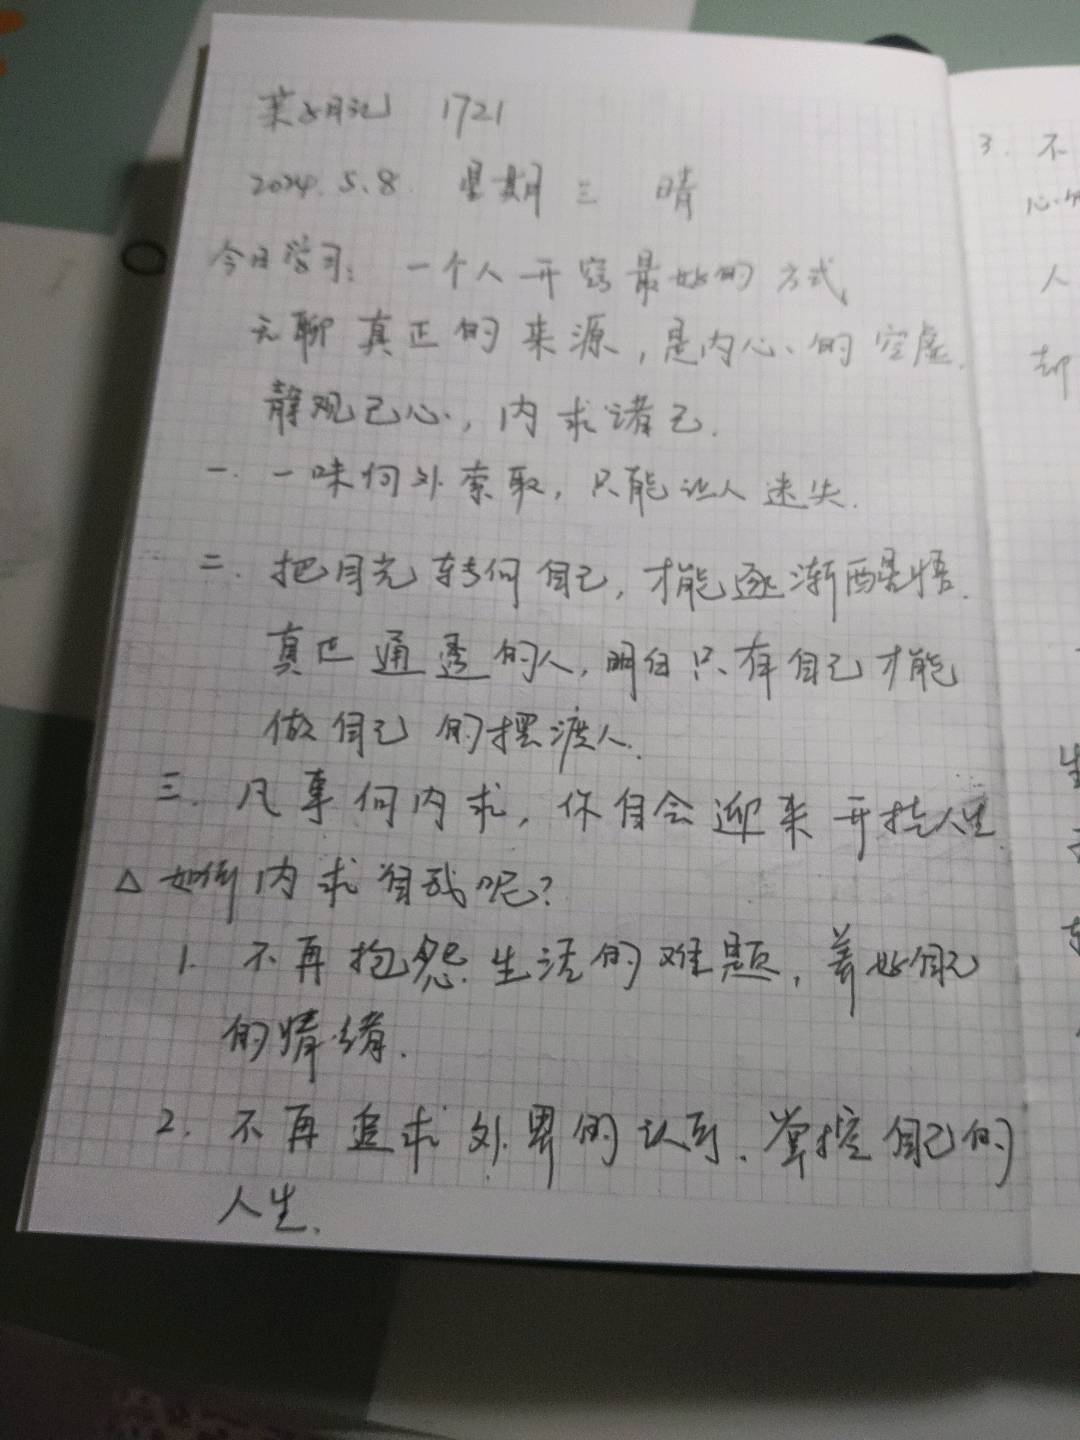 菜子日记 1721
2024.5.8. 星期三 晴
今日学习：一个人开窍最好的方式
无聊真正的来源，是内心的空虚.
静观己心，内求诸己.
一. 一味向外索取，只能让人迷失.
二. 把目光转向自己，才能逐渐醒悟.
真正通透的人，明白只有自己才能
做自己的摆渡人.
三. 凡事向内求，你自会迎来开挂人生.
△ 如何内求自我呢？
1. 不再抱怨生活的难题，养好自己
的情绪.
2. 不再追求外界的认可.掌控自己的
人生.
3. 不
心的
人
却